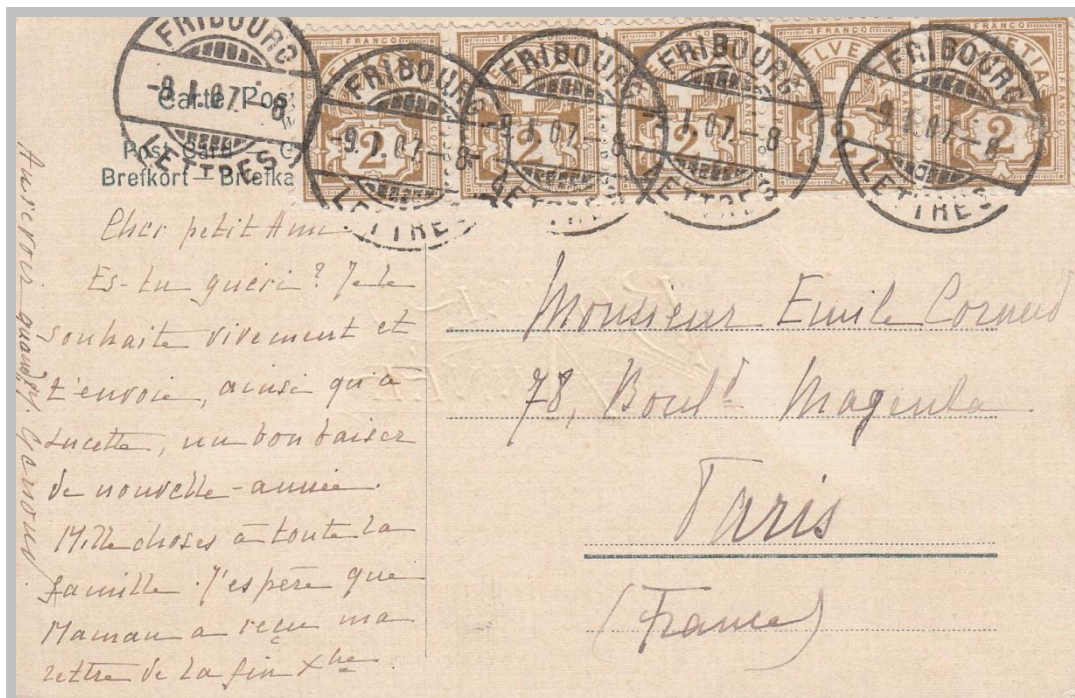 FRANCO FRANCO FRANCO FRANCO FRANCO
HELVETIA
2 2 2 2 2
FRIBOURG
-9.I.07.-8
LETTRES
FRIBOURG
-9.I.07.-8-
LETTRES
FRIBOURG
-9.I.07.-8
LETTRES
FRIBOURG
I.07.-8
LETTRES
FRIBOURG
-9.I.07.-8
LETTRES
Carte Pos
Post Card C
Brefkort — Briefka
Cher petit Ami
Es-tu guéri? Je le
souhaite vivement et
t'envoie, ainsi qu'à
Lucette, un bon baiser
de nouvelle-année.
Mille choses à toute la
famille. J'espère que
Maman a reçu ma
lettre de la fin Xbre
Au revoir quand
Monsieur Emile Cornud
78, Boul.d Magenta
Paris
(France)